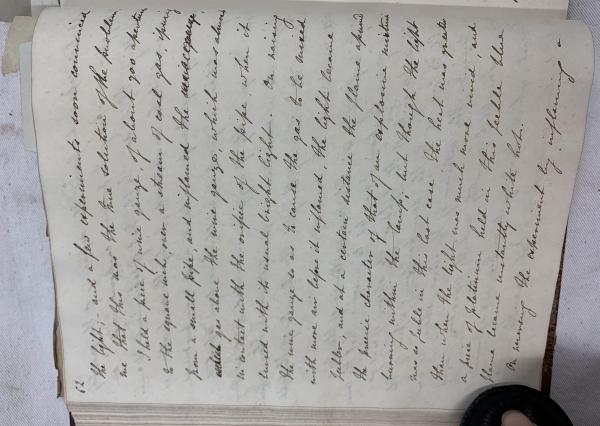 12
the light; and a few experiments soon convinced
me that this was the true solution of the problem
I held a piece of wire gauze, of about 900 apertures
to the square inch over a stream of coal gas issuing
from a small pipe and inflamed the
gas above the wire gauze which was almost
in contact with the orifice of the pipe when it
burned with its usual bright light. On raising
the wire gauze so as to cause the gas to be mixed
with more air before it inflamed, the light became
feebler, and at a certain distance the flame assumed
the precise character of that of an explosive mixture
burning within the lamp; but though the light
was so feeble in this last case the heat was greater
than when the light was much more vivid, and
a piece of Platinum held in this feeble blue
flame became instantly white hot.
On reversing the experiment by inflaming a